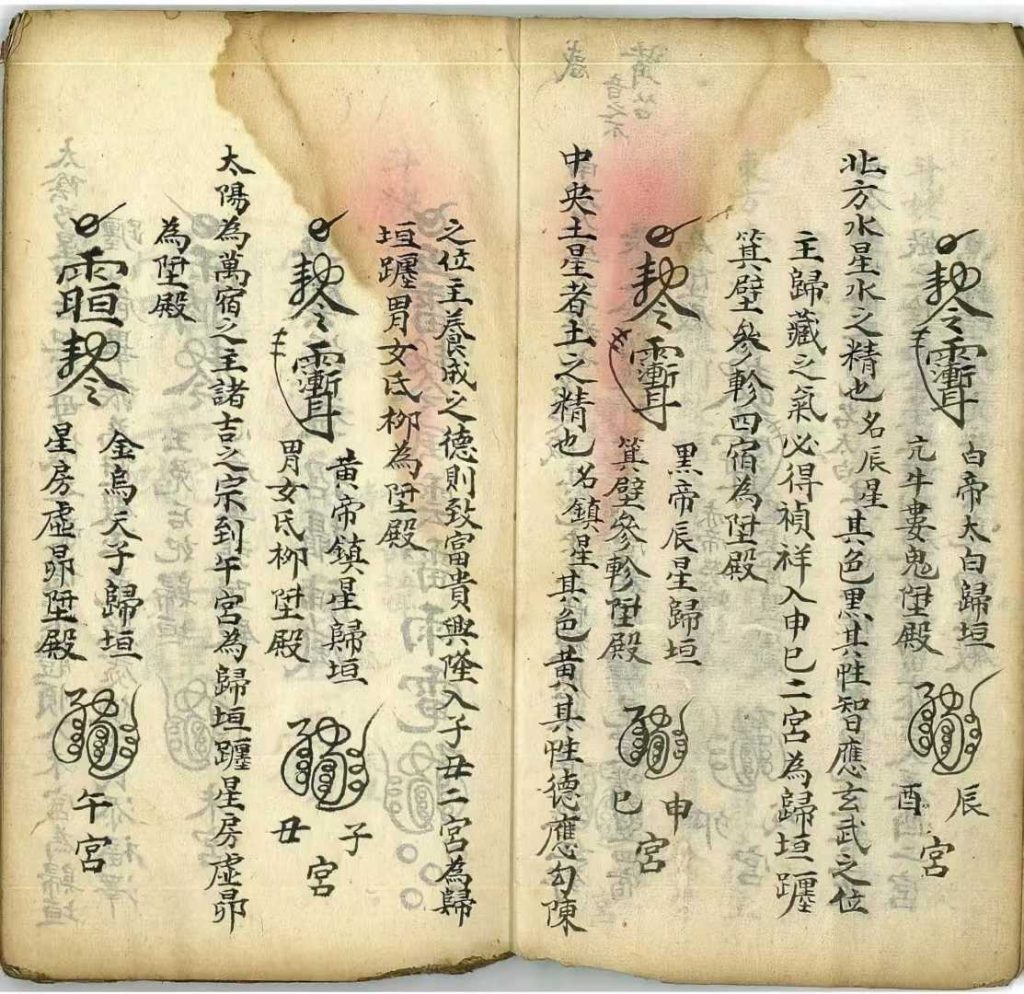 勅令
白帝太白歸垣
亢牛婁鬼陞殿
辰
酉
宮
北方水星水之精也名辰星其色黑其性智應玄武之位
主歸藏之氣必得禎祥入申巳二宮為歸垣躔
箕壁參軫四宿為陞殿
勅令
黑帝辰星歸垣
箕壁參軫陞殿
申
巳
宮
中央土星者土之精也名鎮星其色黃其性德應勾陳
之位主養成之德則致富貴興隆入子丑二宮為歸
垣躔胃女氐柳為陞殿
勅令
黃帝鎮星歸垣
胃女氐柳陞殿
子
丑
宮
太陽為萬宿之主諸吉之宗到午宮為歸垣躔星房虛昴
為陞殿
勅令
金烏天子歸垣
星房虛昴陞殿
午宮